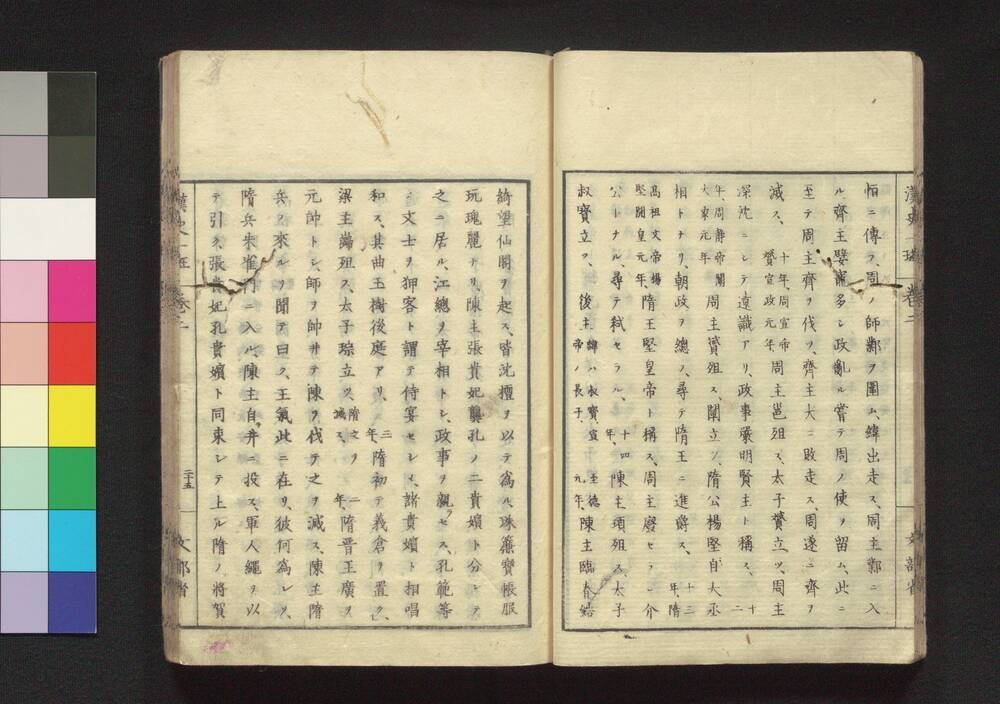 怕ニ傳フ、周ノ師鄴ヲ圍ム、緯出走ス、周主鄴ニ入
ル齊主嬖寵多シ政亂ル嘗テ周ノ使ヲ留ム、此ニ
至テ周主齊ヲ伐ツ、齊主大ニ敗走ス、周遂ニ齊ヲ
滅ス、十年、周宣帝贇宣政元年、周主邕殂ス、太子贇立ツ、周主
深沈ニシテ遠識アリ、政事嚴明賢主ト稱ス、十二
年、周靜帝闡大象元年、周主贇殂ス、闡立ツ、隋公楊堅自大丞
相トナリ、朝政ヲ總フ、尋テ隋王ニ進爵ス、十三年、隋
高祖文帝楊堅開皇元年、隋王堅皇帝ト稱ス、周主廢セラレ介
公トナル、尋テ弑セラル、十四年、陳主頊殂ス、太子
叔寶立ツ、後主諱ハ叔寶宣帝ノ長子、至德元年、陳主臨春結
綺望仙閣ヲ起ス、皆沈檀ヲ以テ爲ル、珠簾寶帳服
玩瑰麗ナリ、陳主張貴妃龔孔ノ二貴嬪ト分レテ
之ニ居ル、江總ヲ宰相トシ、政事ヲ親ラセス、孔範等
ノ文士ヲ狎客ト謂テ侍宴セシメ、諸貴嬪ト相唱
和ス、其曲玉樹後庭アリ、三年、隋初テ義倉ヲ置ク、
梁主巋殂ス、太子琮立ツ、隋之ヲ滅ス、二年、隋晋王廣ヲ
元帥トシ、師ヲ帥井テ陳ヲ伐テ之ヲ滅ス、陳主隋
兵ノ來ルヲ聞テ曰ク、王氣此ニ在リ、彼何爲レソ、
隋兵朱雀門ニ入ル、陳主自ラ井ニ投ス、軍人繩ヲ以
テ引ク、張貴妃孔貴嬪ト同束シテ上ル隋ノ將賀
漢史一班 卷二
二十五
文部省